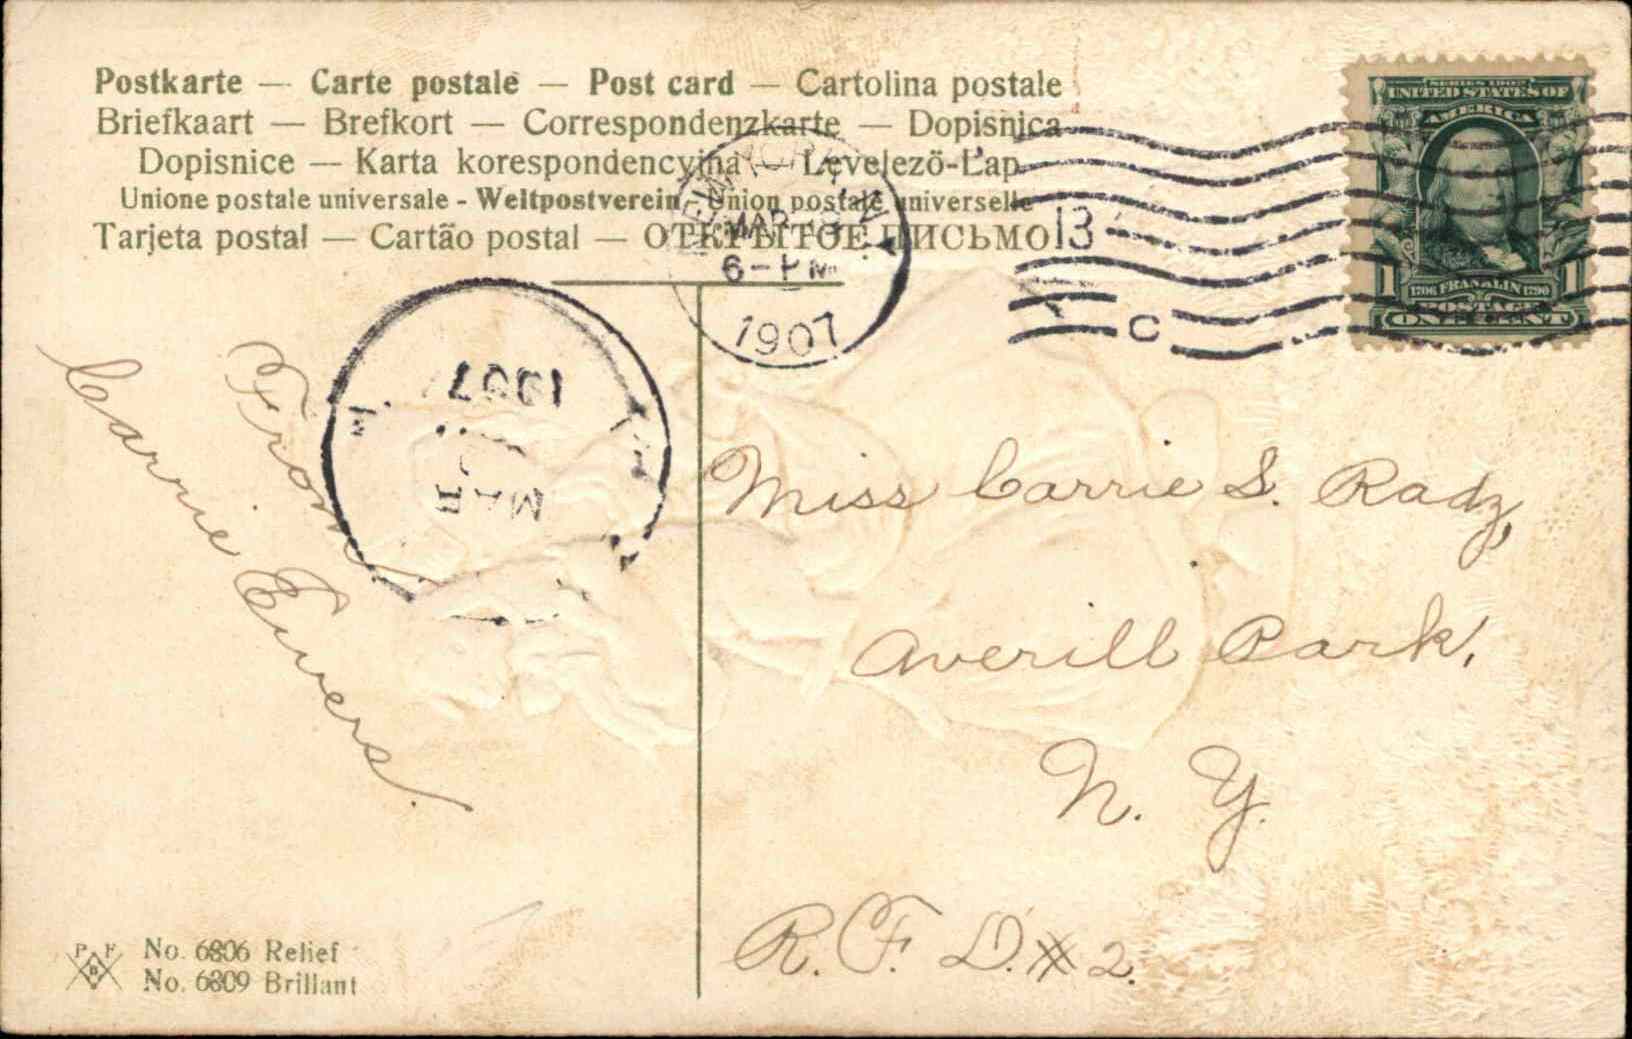 Postkarte — Carte postale — Post card — Cartolina postale
Briefkaart — Brefkort — Correspondenzkarte — Dopisnica
Dopisnice — Karta korespondencyjna — Levelezö-Lap
Unione postale universale - Weltpostverein - Union postale universelle
Tarjeta postal — Cartão postal — ОТКРЫТОЕ ПИСЬМО
SERIES 1902
UNITED STATES OF
AMERICA
1 1706 FRANKLIN 1790 1
POSTAGE
ONE CENT
MAR
6-PM
1907
13
C
1907
MAR
From
Carrie Ewers.
Miss Carrie S. Radz,
Averill Park,
N. Y.
R. F. D. # 2.
P F
B
No. 6806 Relief
No. 6809 Brillant